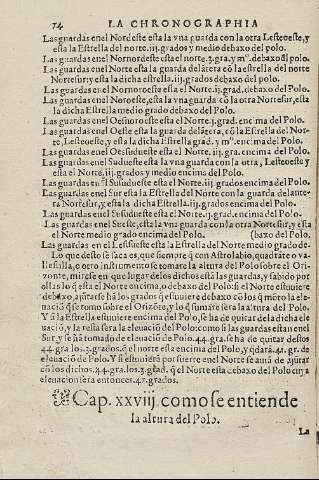 74 LA CHRONOGRAPHIA
Las guardas enel Nordeste esta la vna guarda con la otra Lesteoeste, y
esta la Estrella del norte .iij. grados y medio debaxo del polo.
Las guardas enel Nornordeste esta el norte .3. gra. y mº. debaxo đl polo.
Las guardas enel Norte esta la guarda delãtera cõ la estrella del norte
Nortesur: y esta la dicha Estrella .iij. grados debaxo del polo.
Las guardas enel Nornoroeste esta el Norte .ij. grad. debaxo del Polo.
Las guardas enel Noroeste, esta la vna guarda cõ la otra Nortesur, esta
la dicha Estrella medio grado debaxo del Polo.
Las guardas enel Oesnoroeste esta el Norte .ij. grad. encima del Polo.
Las guardas enel Oeste esta la guarda delãtera, cõ la Estrella del Nor-
te, Lesteoeste, y esta la dicha Estrella grad. y mº. encima del Polo.
Las guardas enel Oessudueste esta el Norte .iij. gra. encima del Polo.
Las guardas enel Sudueste esta la vna guarda con la otra, Lesteoeste y
esta el Norte .iij. grados y medio encima del Polo.
Las guardas enel Susudueste esta el Norte .iij. grados encima del Polo.
Las guardas enel Sur esta la Estrella del Norte con la guarda delante-
ra Nortesur, y esta la dicha Estrella .iij. grados encima del Polo.
Las guardas enel Susudueste esta el Norte .ij. grad. encima del Polo.
Las guardas enel Sueste, esta la vna guarda con la otra Nortesur, y esta
el Norte medio grado encima del Polo. (baxo del Polo.
Las guardas en el Lessueste esta la Estrella del Norte medio grado de-
Lo que desto se saca es, que siempre q̃ con Astrolabio, quadrãte o va-
llestilla, o otro instrumẽto se tomare la altura del Polo sobre el Ori-
zonte, mirese en que lugar de los dichos estã las guardas, y sabido por
ellas lo q̃ esta el Norte encima, o debaxo del Polo: si el Norte estuuiere
debaxo, ajũtarse hã los grados q̃ estuuiere debaxo cõ los q̃ mõtò la ele-
uaciõ q̃ se tomo sobre el Orizõte, y lo q̃ sumare sera la altura del Polo.
Y si la Estrella estuuiere encima del Polo, se ha de quitar de la dicha ele
uaciõ, y la resta sera la eleuaciõ del Polo: como si las guardas estan enel
Sur, y se hà tomado de eleuaciõ de Polo .44. gra. se ha de quitar destos
44. gra. los .3. grados. q̃ el norte esta encima del Polo, y q̃darã .41. gr. de
eleuaciõ de Polo. Y si estuuiera por serie enel Norte se auiã de ajũtar
cõ los dichos .44. gra. los .3. grad. q̃ el Norte esta debaxo del Polo cuya
eleuacion sera entonces .47. grados.
Cap. xxviij. como se entiende
la altura del Polo.
La